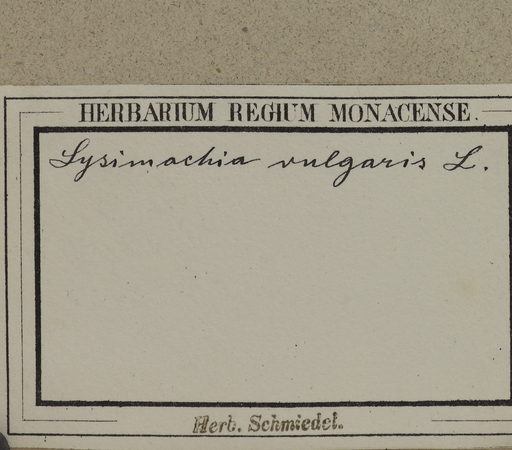 HERBARIUM REGIUM MONACENSE.
Lysimachia vulgaris L.
Herb. Schmiedel.